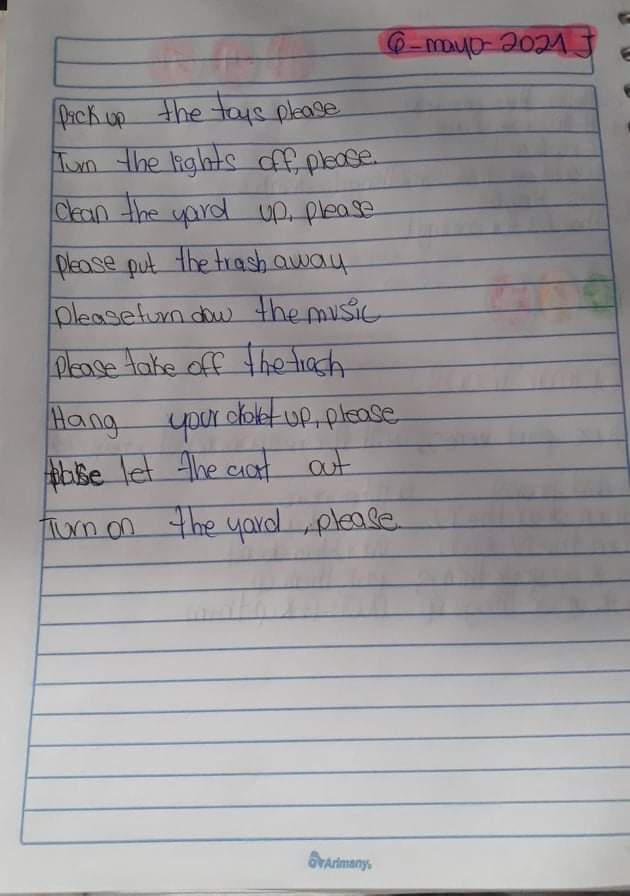 6-mayo-2021 J
Pick up the toys please
Turn the lights off, please.
Clean the yard up, please
please put the trash away
please turn dow the music
please take off the trash
Hang your up, please
let the out
Turn on the yard, please.
Arimany